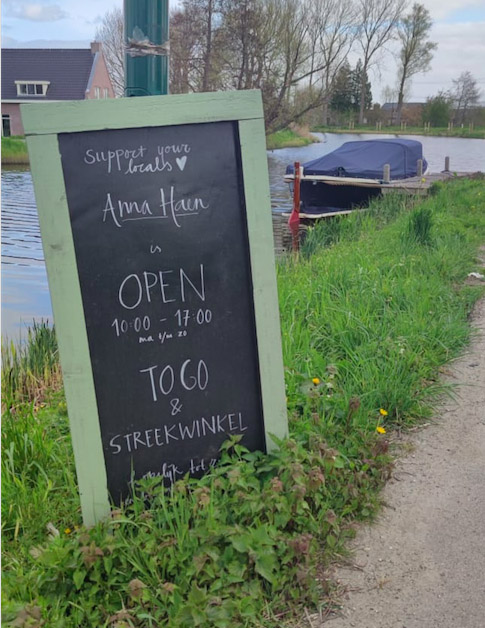 Support your
locals ♥
Anna Haen
is
OPEN
10:00 - 17:00
ma t/m zo
TOGO
&
STREEKWINKEL
tot